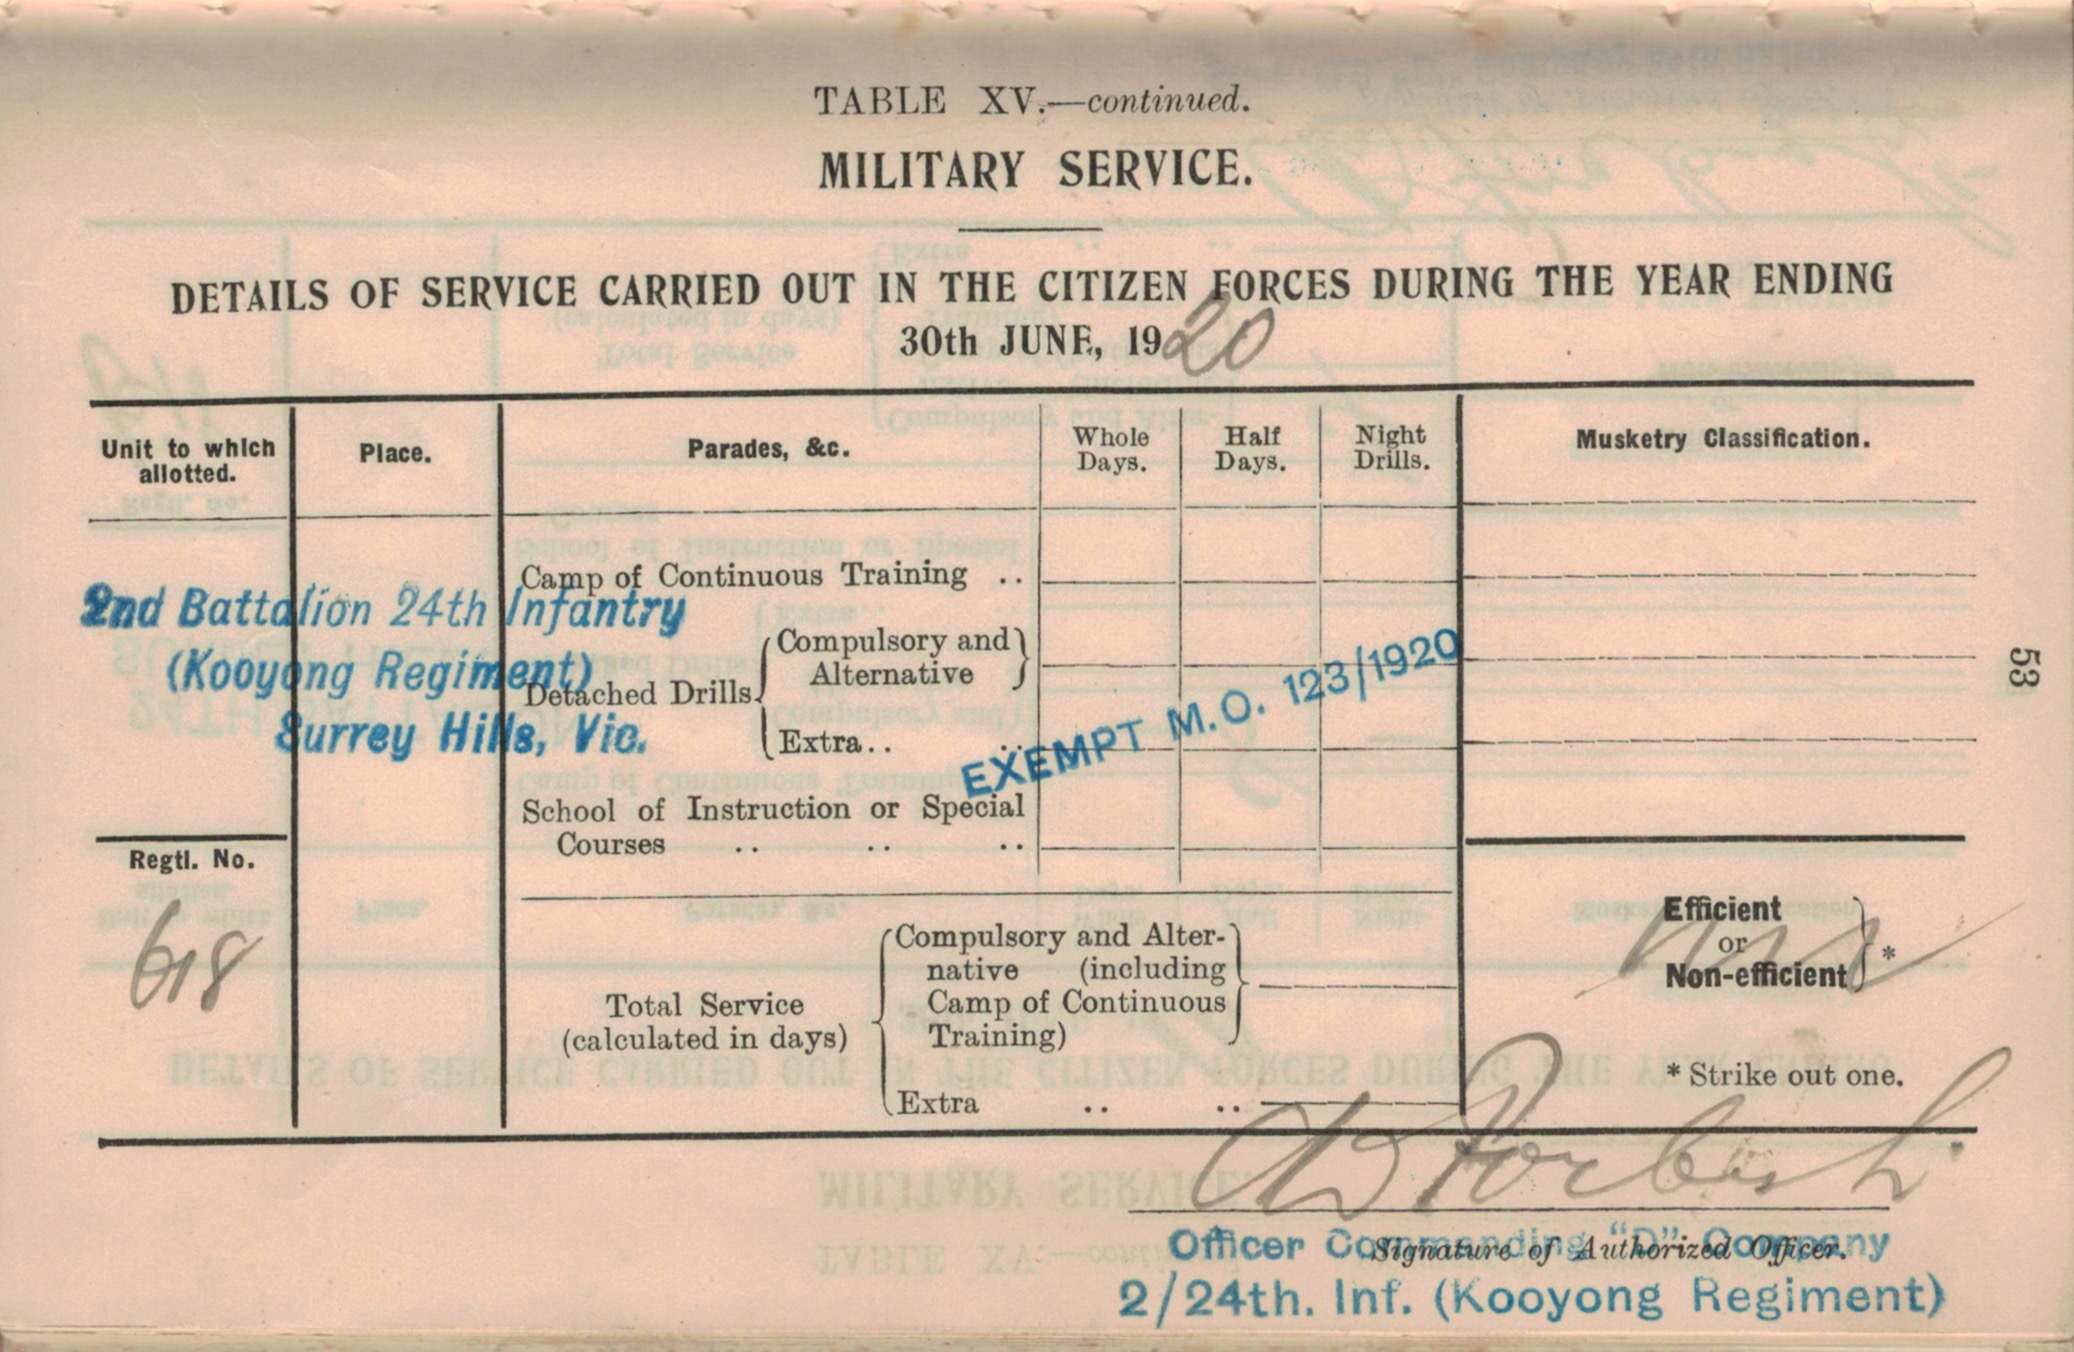 TABLE XV.—continued.
MILITARY SERVICE.
DETAILS OF SERVICE CARRIED OUT IN THE CITIZEN FORCES DURING THE YEAR ENDING
30th JUNE, 1920
Unit to which
allotted.
Place.
Parades, &c.
Whole
Days.
Half
Days.
Night
Drills.
Musketry Classification.
Camp of Continuous Training ..
2nd Battalion 24th Infantry
(Kooyong Regiment)
Surrey Hills, Vic.
Detached Drills
Compulsory and
Alternative
Extra.. ..
EXEMPT M.O. 123/1920
School of Instruction or Special
Courses .. .. ..
Regtl. No.
618
Total Service
(calculated in days)
Compulsory and Alter-
native (including
Camp of Continuous
Training)
Extra .. ..
Efficient
or
Non-efficient
*
* Strike out one.
Signature of Authorized Officer.
Officer Commanding "D" Company
2/24th. Inf. (Kooyong Regiment)
53